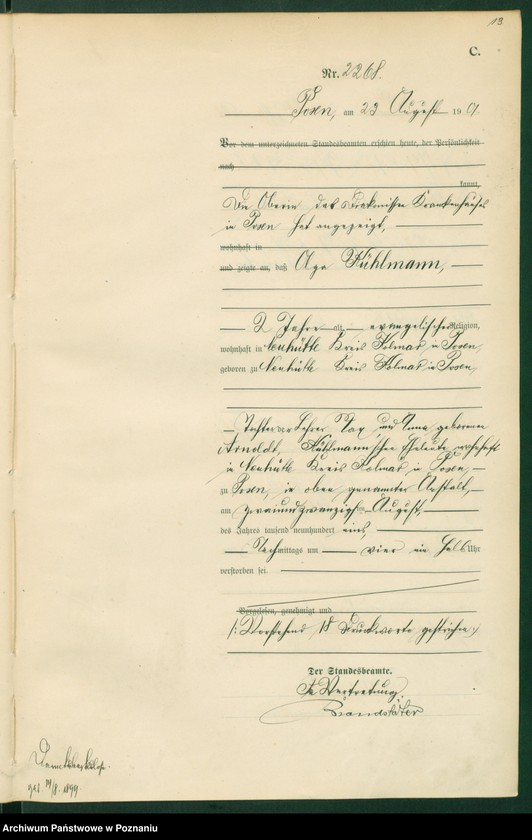 13
C.
Nr. 2268.
Posen, am 23 August 1901.
Vor dem unterzeichneten Standesbeamten erschien heute, der Persönlichkeit
nach
kannt,
Die Oberin des Diakonissen Krankenhauses
in Posen hat angezeigt,
wohnhaft in
und zeigte an, daß Olga Kühlmann,
2 Jahre alt, evangelischer Religion,
wohnhaft in Neuhütte Kreis Kolmar in Posen,
geboren zu Neuhütte Kreis Kolmar in Posen,
Tochter der Lehrer Max und Anna geborenen
Arnoldt, Kühlmann'schen Eheleute wohnhaft
in Neuhütte Kreis Kolmar in Posen,
zu Posen, in oben genannter Anstalt,
am zweiundzwanzigsten August
des Jahres tausend neunhundert eins,
Nachmittags um vier ein halb Uhr
verstorben sei.
Vorgelesen, genehmigt und
/: Vorstehend 18 Druckworte gestrichen :/
Der Standesbeamte.
In Vertretung.
Brandstäter
1899
Archiwum Państwowe w Poznaniu